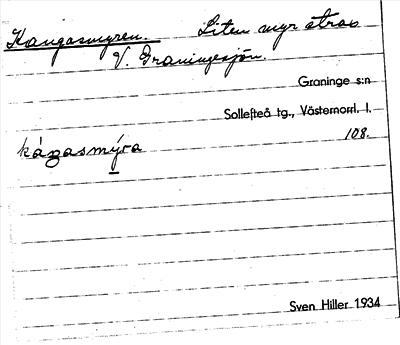 Kangasmyren. Liten myr strax
V. Graningesjön.
Graninge s:n
Sollefteå tg., Västernorrl. l.
108.
kåŋasmýra
Sven Hiller 1934